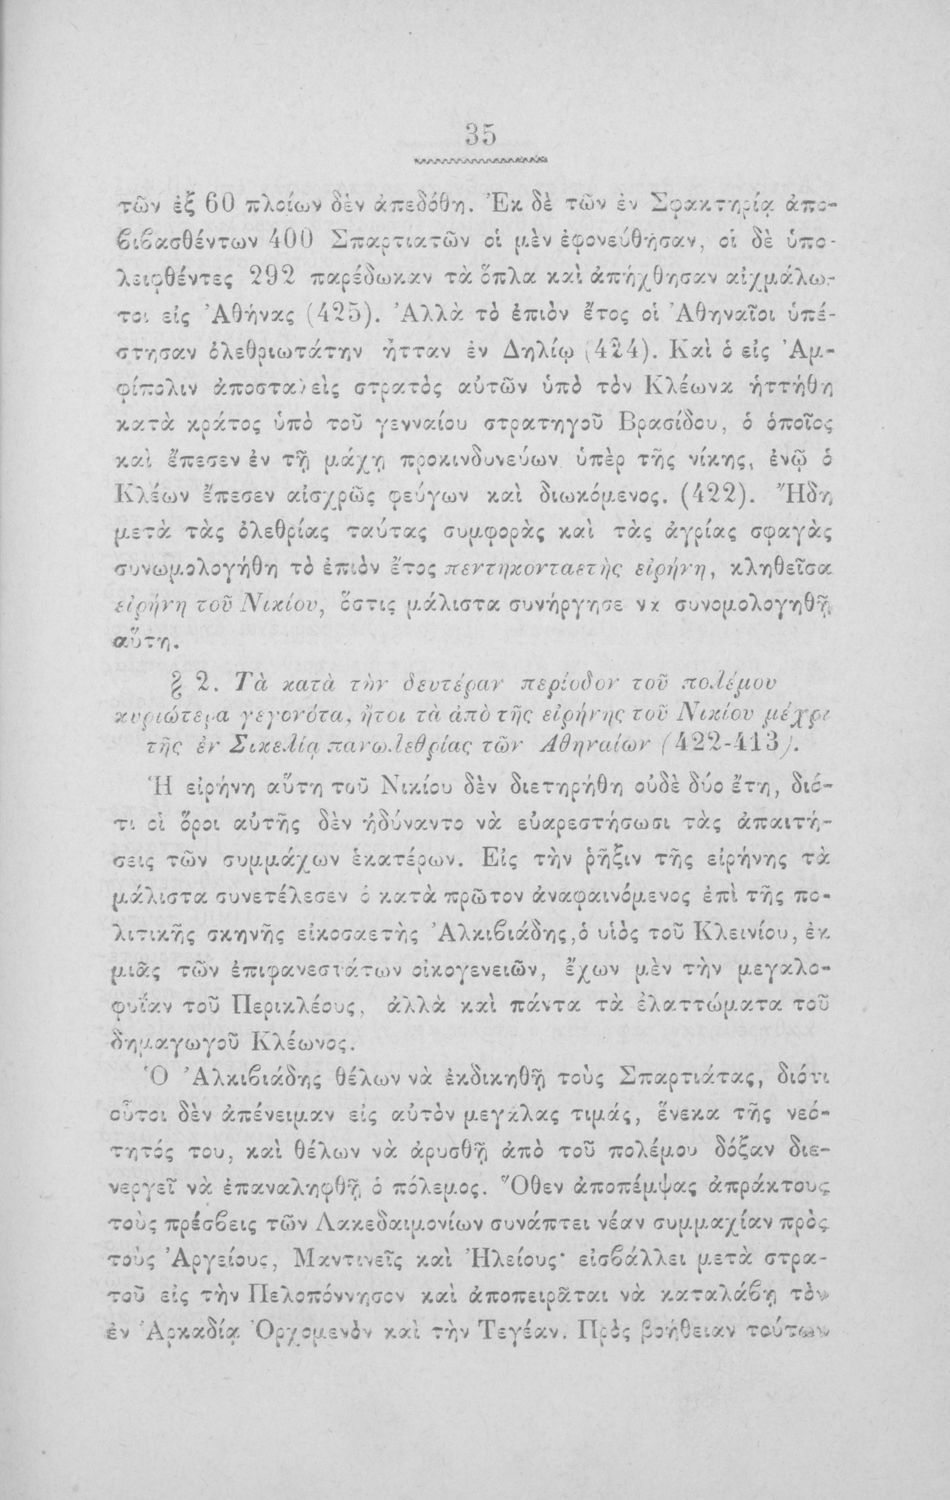 35
τῶν ἐξ 60 πλοίων δὲν ἀπεδόθη. Ἐκ δὲ τῶν ἐν Σφακτηρίᾳ ἀπο-
βιβασθέντων 400 Σπαρτιατῶν οἱ μὲν ἐφονεύθησαν, οἱ δὲ ὑπο-
λειφθέντες 292 παρέδωκαν τὰ ὅπλα καὶ ἀπήχθησαν αἰχμάλω-
τοι εἰς Ἀθήνας (425). Ἀλλὰ τὸ ἐπιὸν ἔτος οἱ Ἀθηναῖοι ὑπέ-
στησαν ὀλεθριωτάτην ἧτταν ἐν Δηλίῳ (424). Καὶ ὁ εἰς Ἀμ-
φίπολιν ἀποσταλεὶς στρατὸς αὐτῶν ὑπὸ τὸν Κλέωνα ἡττήθη
κατὰ κράτος ὑπὸ τοῦ γενναίου στρατηγοῦ Βρασίδου, ὁ ὁποῖος
καὶ ἔπεσεν ἐν τῇ μάχῃ προκινδυνεύων ὑπὲρ τῆς νίκης, ἐνῷ ὁ
Κλέων ἔπεσεν αἰσχρῶς φεύγων καὶ διωκόμενος. (422). Ἤδη
μετὰ τὰς ὀλεθρίας ταύτας συμφορὰς καὶ τὰς ἀγρίας σφαγὰς
συνωμολογήθη τὸ ἐπιὸν ἔτος πεντηκονταετὴς εἰρήνη, κληθεῖσα
εἰρήνη τοῦ Νικίου, ὅστις μάλιστα συνήργησε νὰ συνομολογηθῇ
αὕτη.
§ 2. Τὰ κατὰ τὴν δευτέραν περίοδον τοῦ πολέμου
κυριώτερα γεγονότα, ἤτοι τὰ ἀπὸ τῆς εἰρήνης τοῦ Νικίου μέχρι
τῆς ἐν Σικελίᾳ πανωλεθρίας τῶν Ἀθηναίων (422-413).
Ἡ εἰρήνη αὕτη τοῦ Νικίου δὲν διετηρήθη οὐδὲ δύο ἔτη, διό-
τι οἱ ὅροι αὐτῆς δὲν ἠδύναντο νὰ εὐαρεστήσωσι τὰς ἀπαιτή-
σεις τῶν συμμάχων ἑκατέρων. Εἰς τὴν ῥῆξιν τῆς εἰρήνης τὰ
μάλιστα συνετέλεσεν ὁ κατὰ πρῶτον ἀναφαινόμενος ἐπὶ τῆς πο-
λιτικῆς σκηνῆς εἰκοσαετὴς Ἀλκιβιάδης, ὁ υἱὸς τοῦ Κλεινίου, ἐκ
μιᾶς τῶν ἐπιφανεστάτων οἰκογενειῶν, ἔχων μὲν τὴν μεγαλο-
φυΐαν τοῦ Περικλέους, ἀλλὰ καὶ πάντα τὰ ἐλαττώματα τοῦ
δημαγωγοῦ Κλέωνος.
Ὁ Ἀλκιβιάδης θέλων νὰ ἐκδικηθῇ τοὺς Σπαρτιάτας, διότι
οὗτοι δὲν ἀπένειμαν εἰς αὐτὸν μεγάλας τιμάς, ἕνεκα τῆς νεό-
τητός του, καὶ θέλων νὰ ἀρυσθῇ ἀπὸ τοῦ πολέμου δόξαν διε-
νεργεῖ νὰ ἐπαναληφθῇ ὁ πόλεμος. Ὅθεν ἀποπέμψας ἀπράκτους
τοὺς πρέσβεις τῶν Λακεδαιμονίων συνάπτει νέαν συμμαχίαν πρὸς
τοὺς Ἀργείους, Μαντινεῖς καὶ Ἠλείους· εἰσβάλλει μετὰ στρα-
τοῦ εἰς τὴν Πελοπόννησον καὶ ἀποπειρᾶται νὰ καταλάβῃ τὸν
ἐν Ἀρκαδίᾳ Ὀρχομενὸν καὶ τὴν Τεγέαν. Πρὸς βοήθειαν τούτων